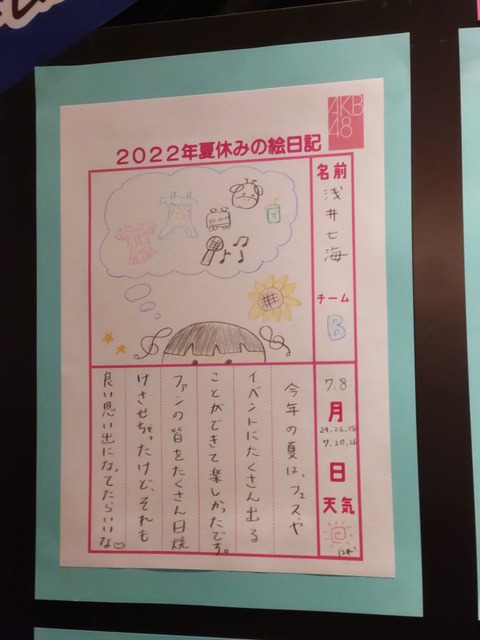 AKB
48
2022年夏休みの絵日記
名前
浅井七海
チーム
B
7.8
月
24.26.28
7.20.26
日
天気
今年の夏は、フェスや
イベントにたくさん出る
ことができて楽しかったです。
ファンの皆をたくさん日焼
けさせちゃったけど、それも
良い思い出になってたらいいな